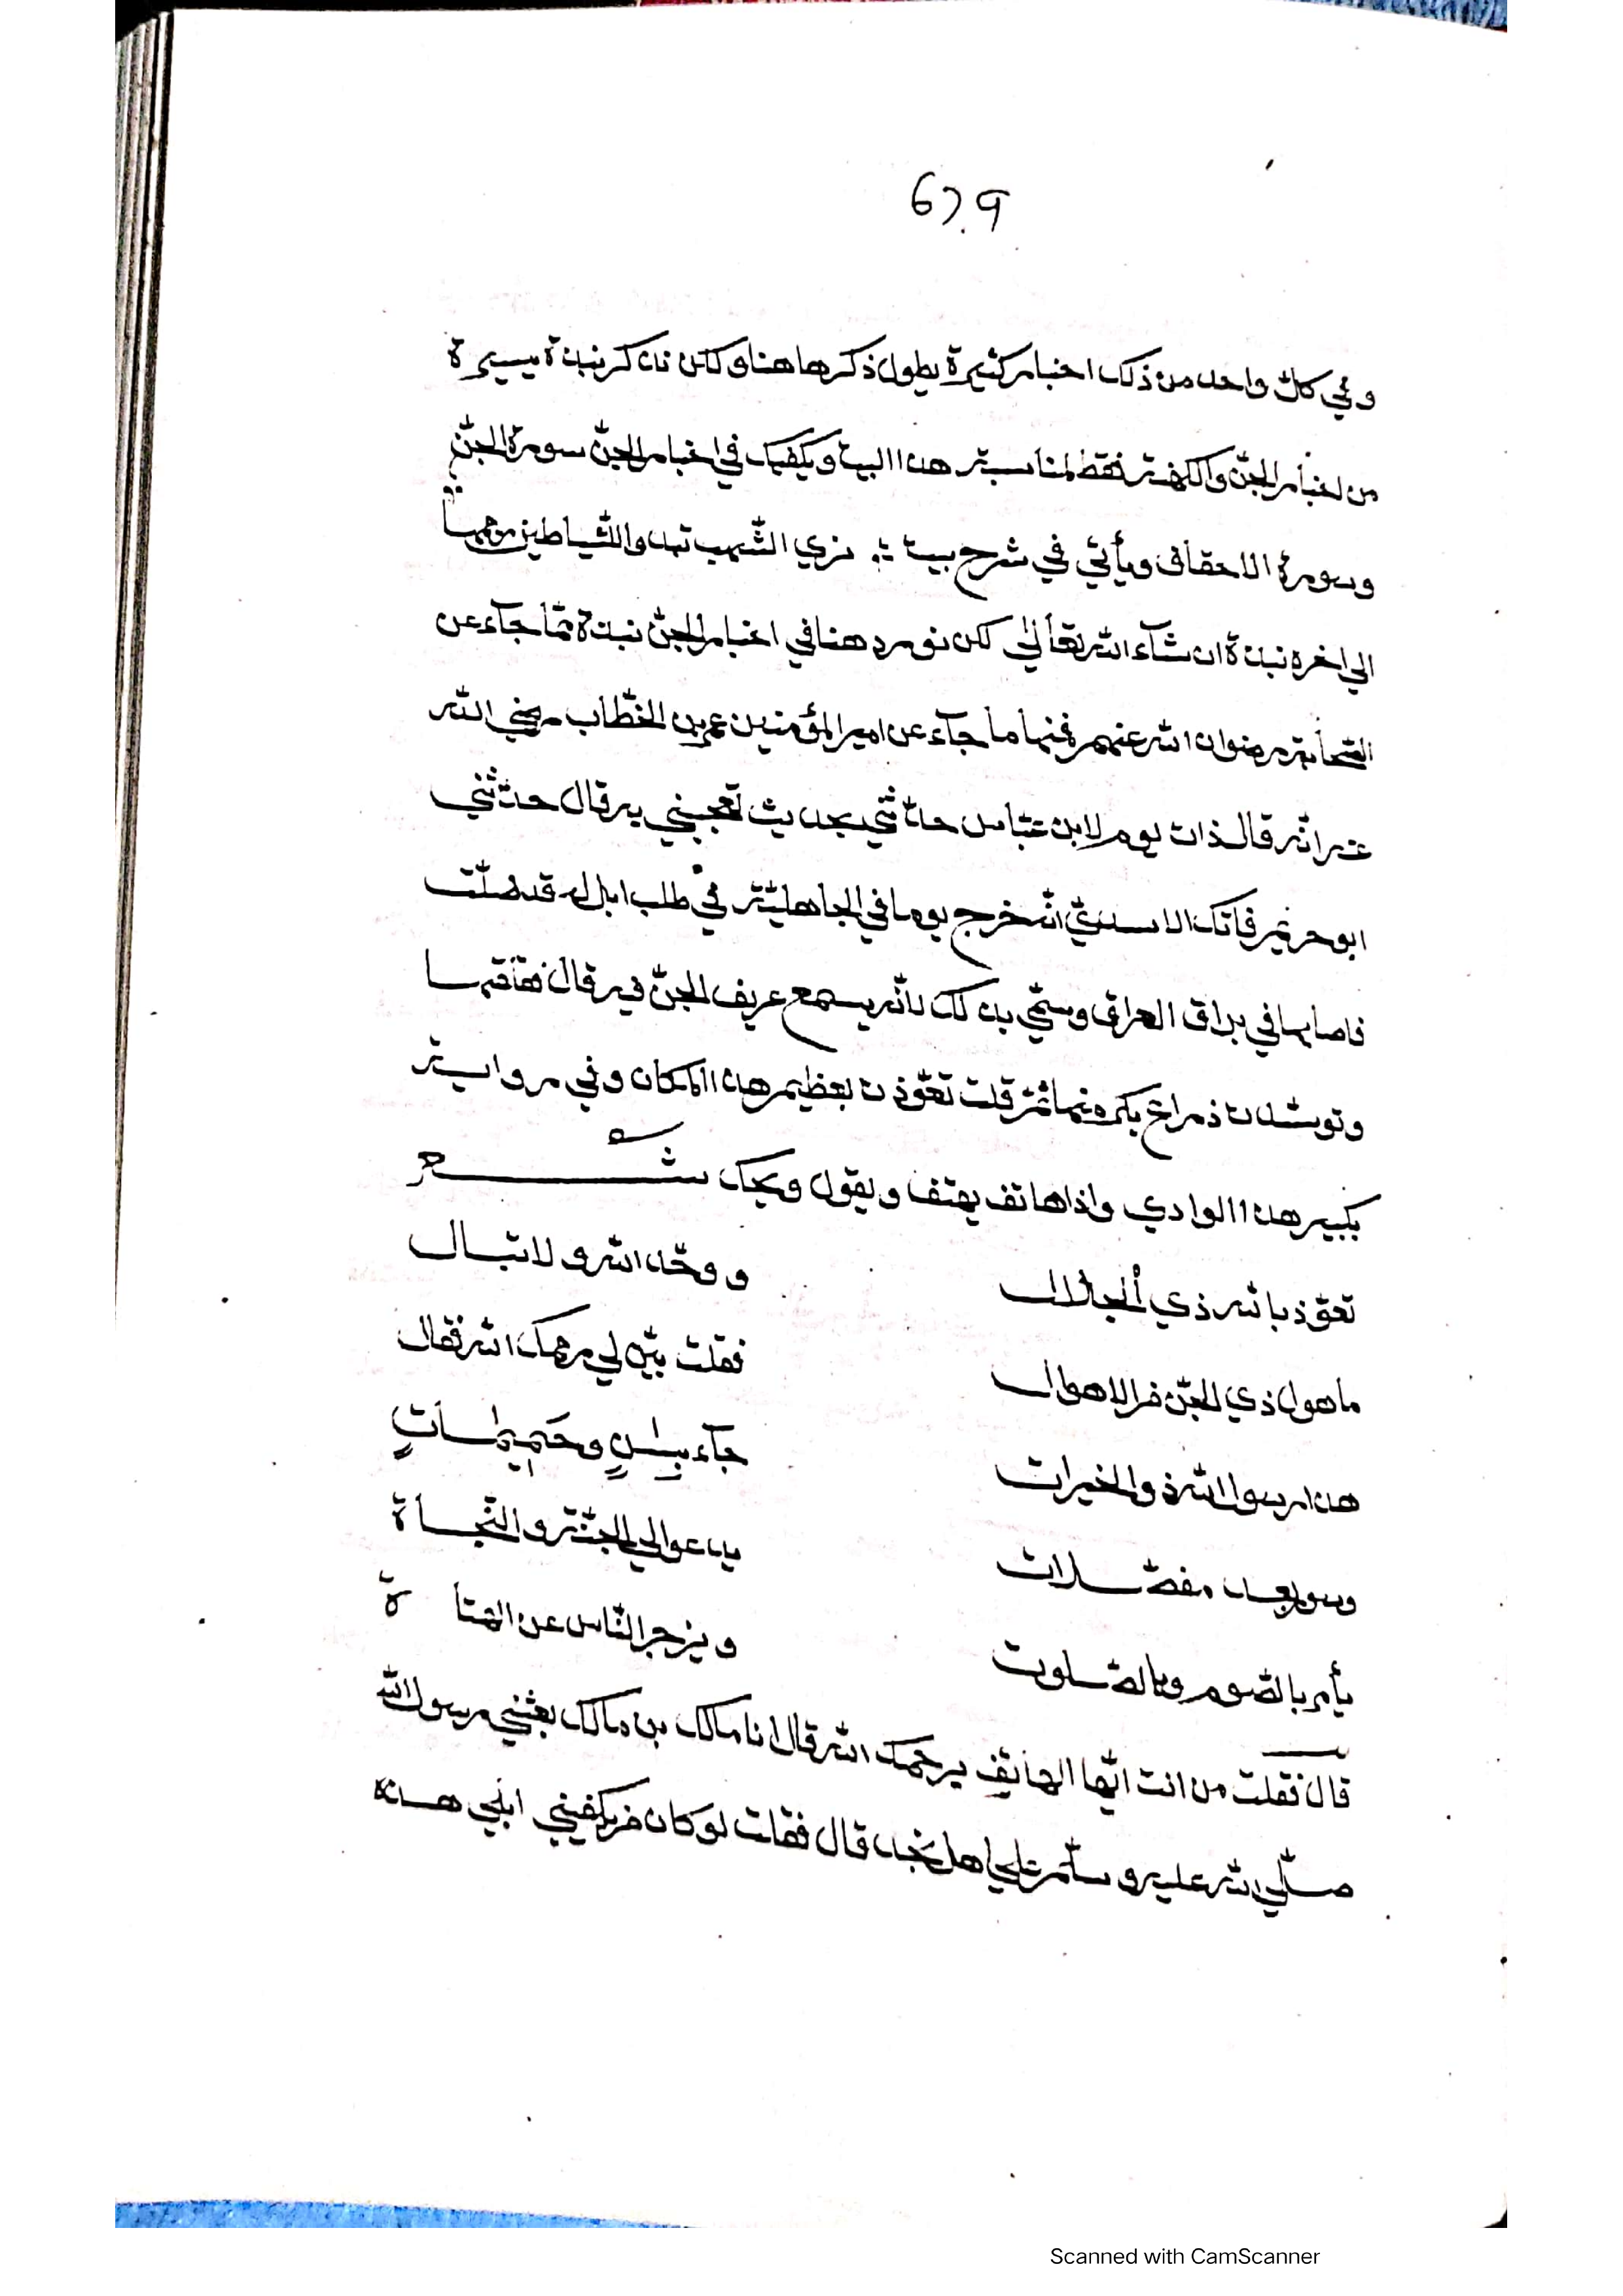 679
وفي كل واحد من ذلك اخبار كثيرة يطول ذكرها هنا ولكن نذكر نبذة يسيرة
من اخبار الجنّ والكهنة فقط لمناسبة هذا البيت ويكفيك في اخبار الجنّ سورة الجنّ
وسورة الاحقاف ويأتي في شرح بيت ∴ نري الشّهب تبدوا للشّياطين رجما
الي اخره نبذة ان شآء الله تعالي لكن نورد هنا في اخبار الجنّ نبذة ممّا جآء عن
الصّحابة رضوان الله عنهم فمنها ما جآء عن امير المؤمنين عمر بن الخطّاب رضي الله
عنه انّه قال ذات يوم لابن عبّاس حدّثني بحديث تعجبني به قال حدّثني
ابو حريم فاتك الاسديّ انّه خرج يوما في الجاهليّة في طلب ابل له قد ضلّت
فاصابها في براق العراق وسمّي بذلك لانّه يسمع عزيف الجنّ فيه قال فعقلتها
وتوسّدت ذراع بكره منها ثمّ قلت تعوّذت بعظيم هذا المكان وفي رواية
بكبير هذا الوادي واذا هاتف يهتف ويقول ويحك شعر
تعوّذ بالله ذي الجلال ووحّد الله ولا تبال
ما هول ذي الجنّ من الاهوال فقلت بيّن لي رحمك الله فقال
هذا رسول الله ذو الخيرات جآء بياسٍ وحَمِيماتٍ
وسور بعد مفصّلات يدعو الي الجنّة والنّجاة
يأمر بالصّوم وبالصّلوت ويزجر النّاس عن الهناة
قال فقلت من انت ايّها الهاتف يرحمك الله قال انا مالك بن مالك بعثني رسول الله
صلّي الله عليه وسلّم علي اهل نجد قال فقلت لو كان من يكفيني ابلي هذه
Scanned with CamScanner